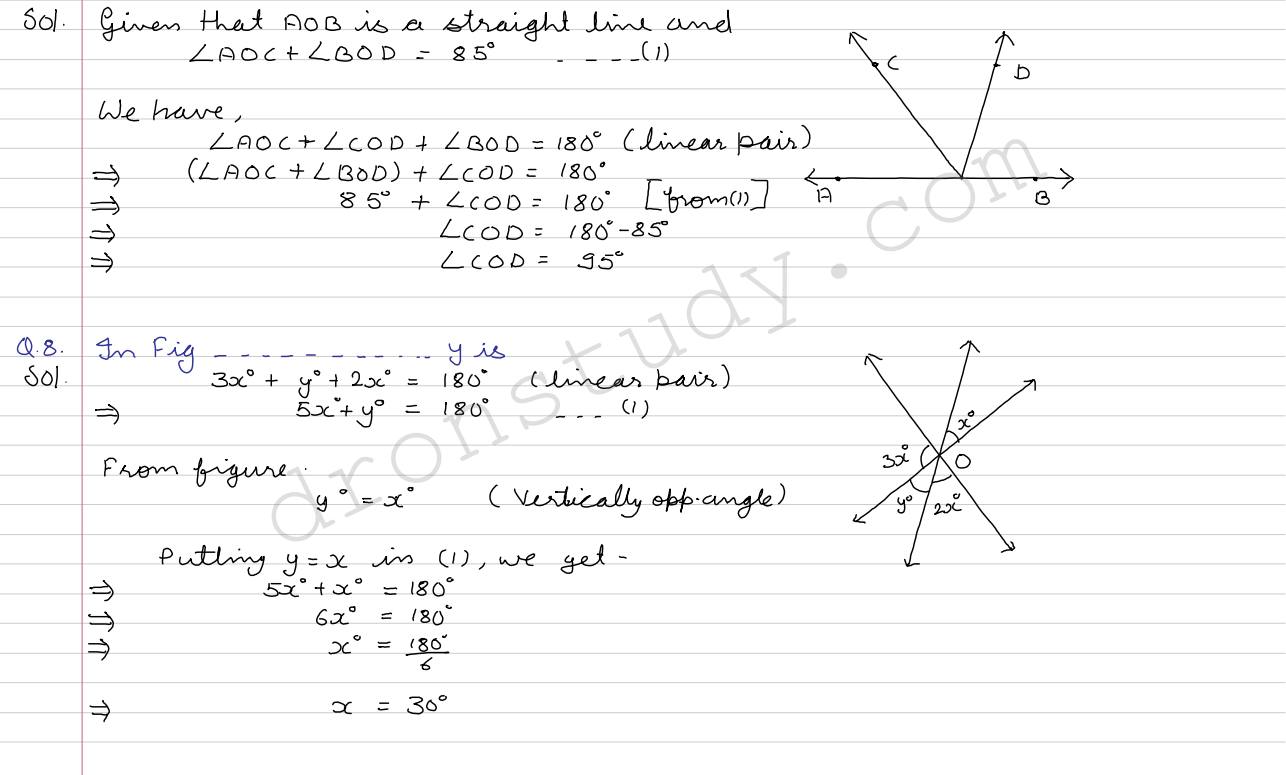 Sol. Given that AOB is a straight line and
∠AOC + ∠BOD = 85° - - - - (1)
We have,
∠AOC + ∠COD + ∠BOD = 180° (linear pair)
⇒ (∠AOC + ∠BOD) + ∠COD = 180°
⇒ 85° + ∠COD = 180° [from (1)]
⇒ ∠COD = 180° - 85°
⇒ ∠COD = 95°
C
D
A
B
Q.8. In Fig - - - - - - - - - .. .. y is
Sol. 3x° + y° + 2x° = 180° (linear pair)
⇒ 5x° + y° = 180° - - - (1)
From figure.
y° = x° (Vertically opp. angle)
Putting y = x in (1), we get -
⇒ 5x° + x° = 180°
⇒ 6x° = 180°
⇒ x° = 180°/6
⇒ x = 30°
x°
3x°
O
y°
2x°
dronstudy.com